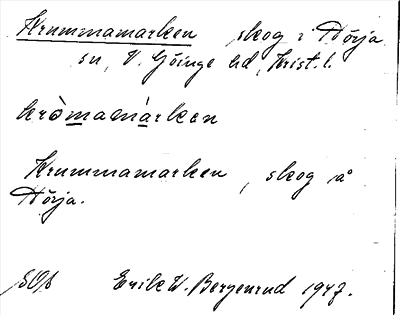 Krummamarken skog i Hörja
sn, V. Göinge hd, Krist. l.
kròmamárken
Krummamarken, skog å
Hörja.
SOb Erik W. Bergenrud 1947.